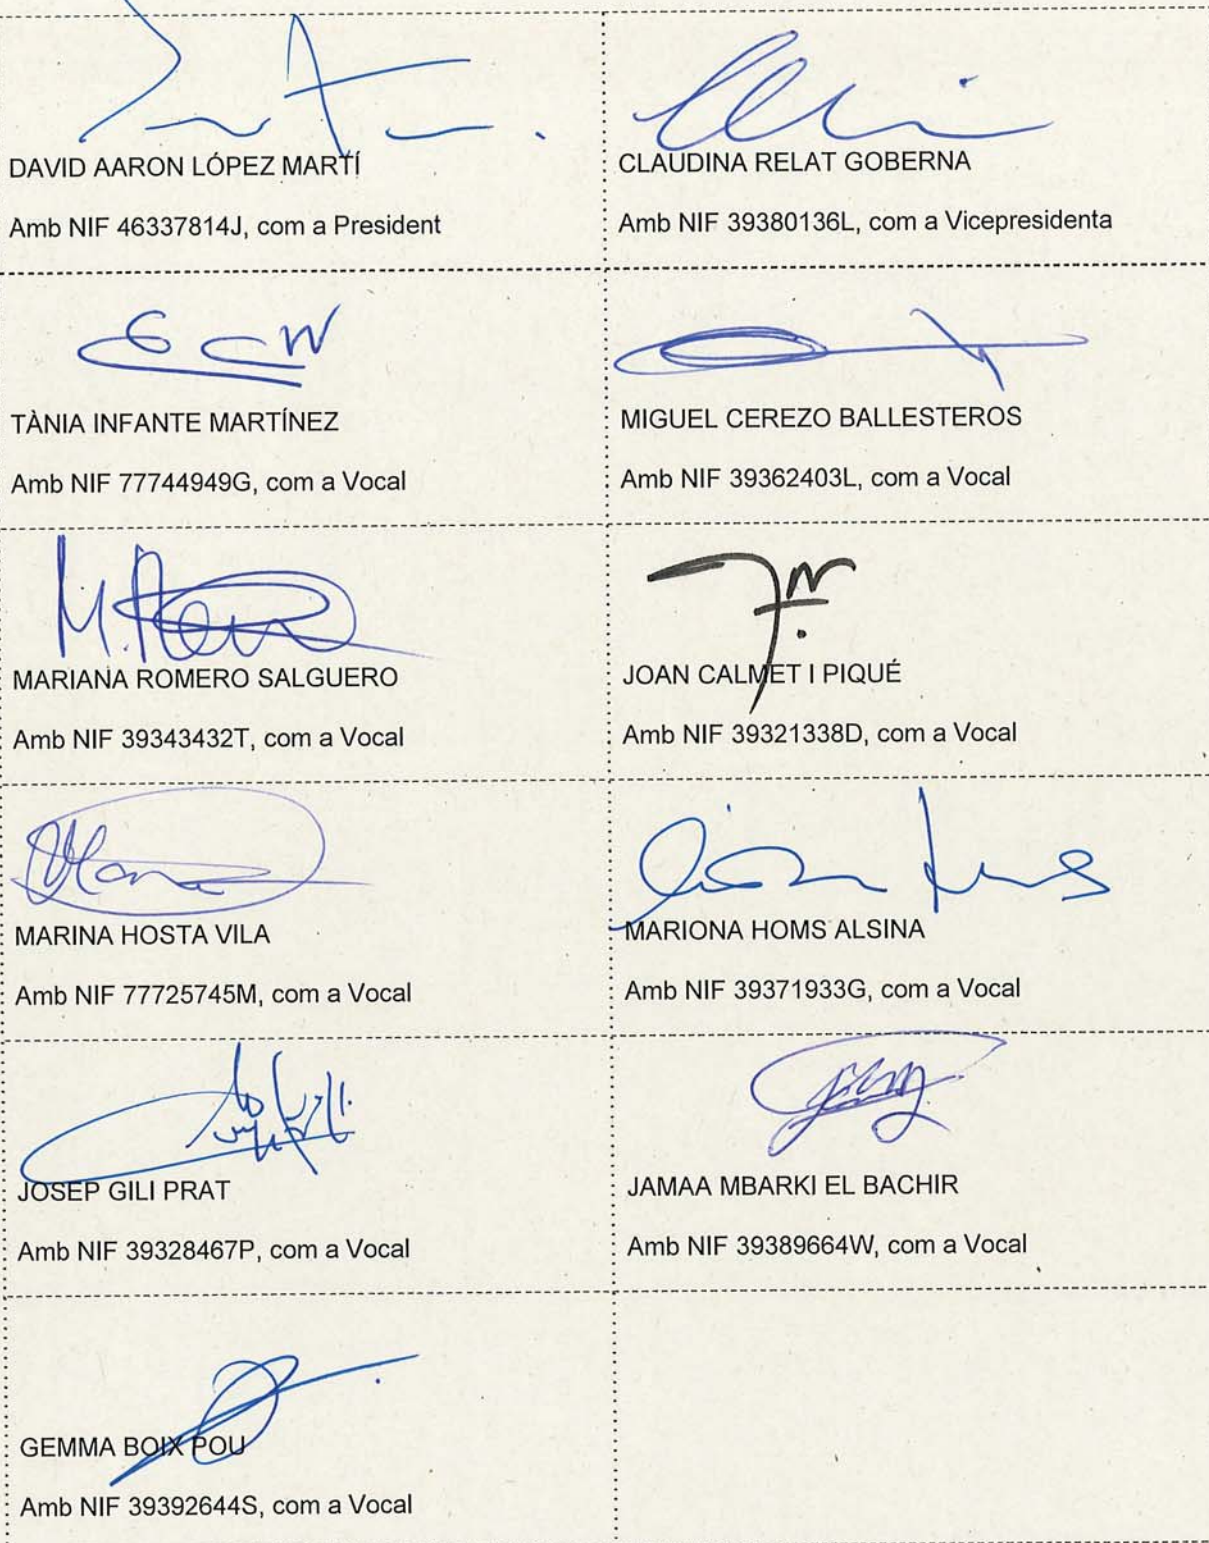 DAVID AARON LÓPEZ MARTÍ
Amb NIF 46337814J, com a President
CLAUDINA RELAT GOBERNA
Amb NIF 39380136L, com a Vicepresidenta
TÀNIA INFANTE MARTÍNEZ
Amb NIF 77744949G, com a Vocal
MIGUEL CEREZO BALLESTEROS
Amb NIF 39362403L, com a Vocal
MARIANA ROMERO SALGUERO
Amb NIF 39343432T, com a Vocal
JOAN CALMET I PIQUÉ
Amb NIF 39321338D, com a Vocal
MARINA HOSTA VILA
Amb NIF 77725745M, com a Vocal
MARIONA HOMS ALSINA
Amb NIF 39371933G, com a Vocal
JOSEP GILI PRAT
Amb NIF 39328467P, com a Vocal
JAMAA MBARKI EL BACHIR
Amb NIF 39389664W, com a Vocal
GEMMA BOIX POU
Amb NIF 39392644S, com a Vocal